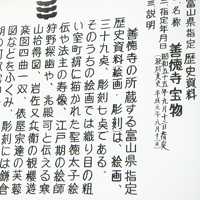 富山県指定 歴史資料
一 名称 善徳寺宝物
二 指定年月日 昭和五十五年九月十日
三 説明
善徳寺の所蔵する富山県指定
歴史資料絵画・彫刻は、絵画、
三十九点、彫刻七点である。
そのうちの絵画では織り目の粗
い室町期に描かれた聖徳太子絵
伝や法主の寿像、江戸期の絵師
狩野探幽や、兆殿司と伝える寒
山拾得図、岩佐又兵衛の観桜遊
楽図四曲一双、俵屋宗達の芙蓉
彫刻には鎌倉